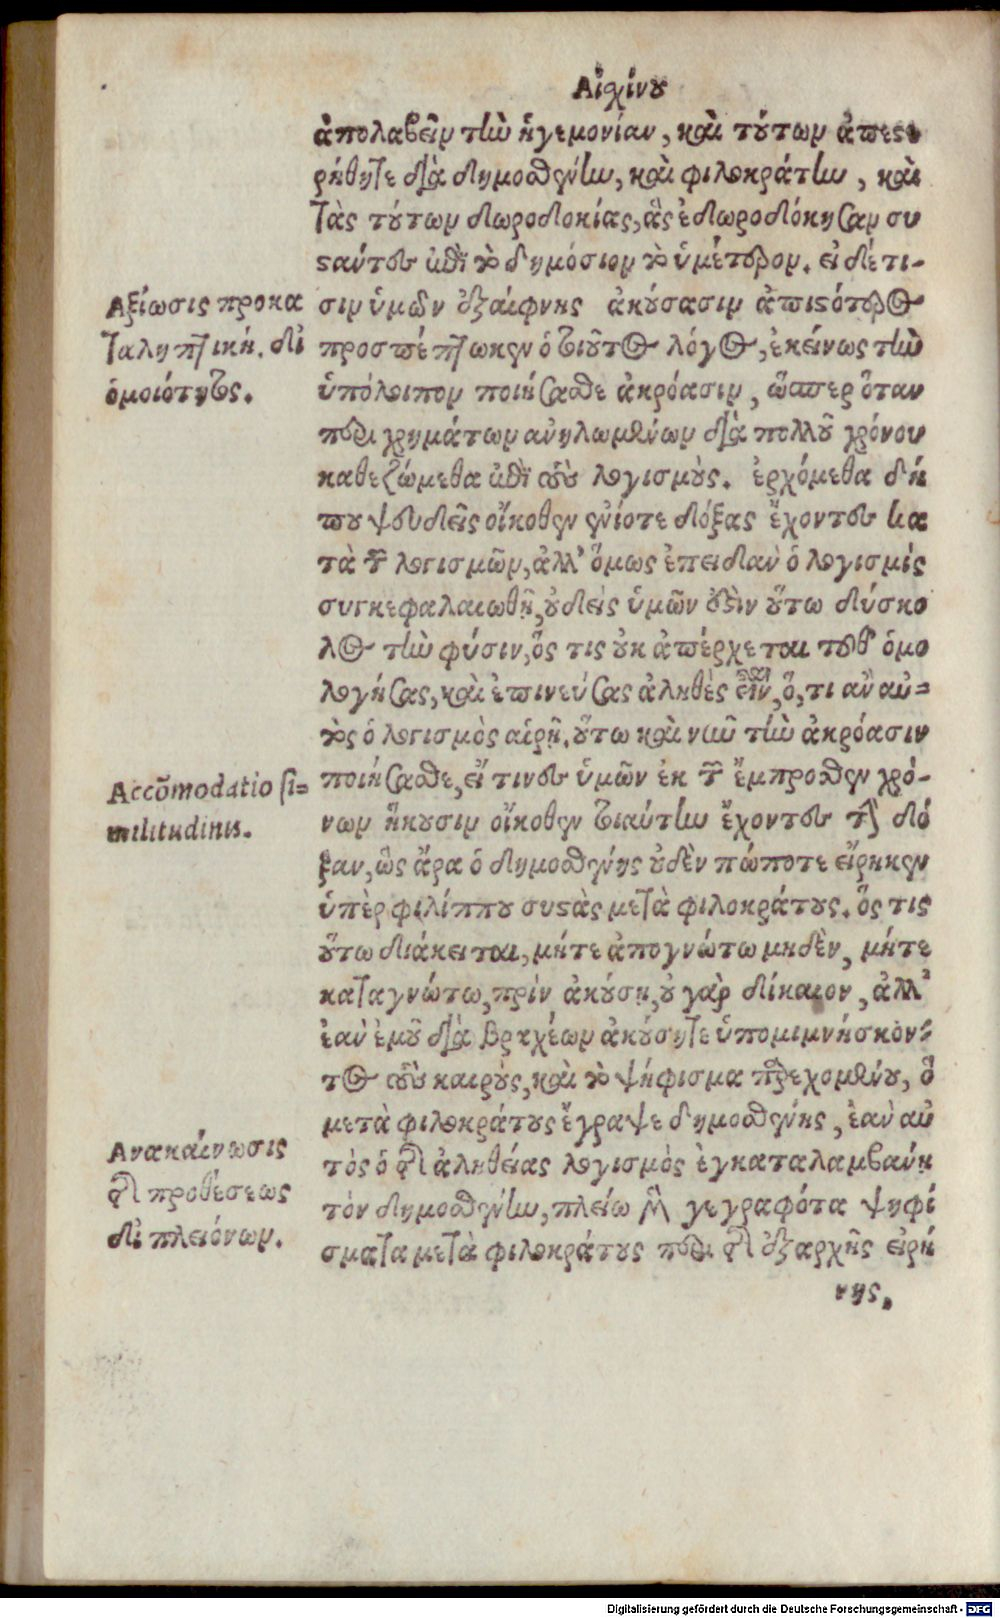 Αἰσχίνου
ἀπολαβεῖν τὴν ἡγεμονίαν, καὶ τούτων ἀπεστε
ρήθητε διὰ δημοσθένην, καὶ φιλοκράτην, καὶ
τὰς τούτων δωροδοκίας, ἃς ἐδωροδόκησαν συ
στάντες ἐπὶ τὸ δημόσιον τὸ ὑμέτερον. εἰ δέ τι-
Αξίωσις προκα
ταληπτική. δι
ὁμοιότητος.
σιν ὑμῶν ἐξαίφνης ἀκούσασιν ἀπιστότερος
προσπέπτωκεν ὁ τοιοῦτος λόγος, ἐκείνως τὴν
ὑπόλοιπον ποιήσασθε ἀκρόασιν, ὥσπερ ὅταν
περὶ χρημάτων ἀνηλωμένων διὰ πολλοῦ χρόνου
καθεζώμεθα ἐπὶ τοὺς λογισμούς. ἐρχόμεθα δή
που ψευδεῖς οἴκοθεν ἐνίοτε δόξας ἔχοντες κα
τὰ τῶν λογισμῶν, ἀλλ' ὅμως ἐπειδὰν ὁ λογισμὸς
συγκεφαλαιωθῇ, οὐδεὶς ὑμῶν ἐστὶν οὕτω δύσκο
λος τὴν φύσιν, ὅς τις οὐκ ἀπέρχεται τοῦθ' ὁμο
λογήσας, καὶ ἐπινεύσας ἀληθὲς εἶναι, ὅ, τι ἂν αὐ=
τὸς ὁ λογισμὸς αἱρῇ. οὕτω καὶ νῦν τὴν ἀκρόασιν
Accōmodatio si=
militudinis.
ποιήσασθε, εἴ τινες ὑμῶν ἐκ τῶν ἔμπροσθεν χρό-
νων ἥκουσιν οἴκοθεν τοιαύτην ἔχοντες τὴν δό
ξαν, ὡς ἄρα ὁ δημοσθένης οὐδὲν πώποτε εἴρηκεν
ὑπὲρ φιλίππου συστὰς μετὰ φιλοκράτους. ὅς τις
οὕτω διάκειται, μήτε ἀπογνώτω μηδὲν, μήτε
καταγνώτω, πρὶν ἀκούσῃ, οὐ γὰρ δίκαιον, ἀλλ'
ἐὰν ἐμοῦ διὰ βραχέων ἀκούσητε ὑπομιμνήσκον=
τος τοὺς καιροὺς, καὶ τὸ ψήφισμα παρεχομένου, ὃ
μετὰ φιλοκράτους ἔγραψε δημοσθένης, ἐὰν αὐ
Ανακαίνωσις
τῆς προθέσεως
διὰ πλειόνων.
τὸς ὁ τῆς ἀληθείας λογισμὸς ἐγκαταλαμβάνῃ
τὸν δημοσθένην, πλείω μὲν γεγραφότα ψηφί
σματα μετὰ φιλοκράτους περὶ τῆς ἐξαρχῆς εἰρή
νης.
Digitalisierung gefördert durch die Deutsche Forschungsgemeinschaft - DFG